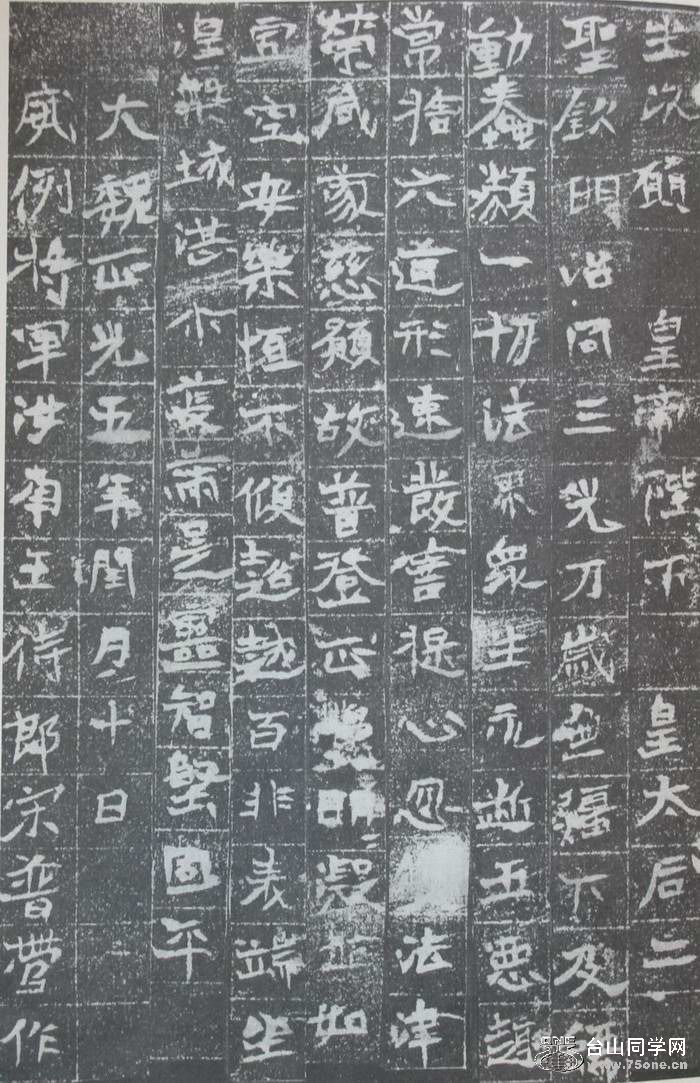 生次願 皇帝陛下 皇太后二
聖欽明洽同三光万歲無疆下及
動蠢類一切法界眾生永逝五惡趣
常捨六道形速發害提心忍法津
榮咸蒙慈願故普登正覺明澂並如
空安樂恒不傾超越百非表端坐
涅槃城洪不裴靈智堅固平
大魏正光五年閏月十日
威例將軍涉南王侍郎宋普作
台山同学网
www.75one.cn